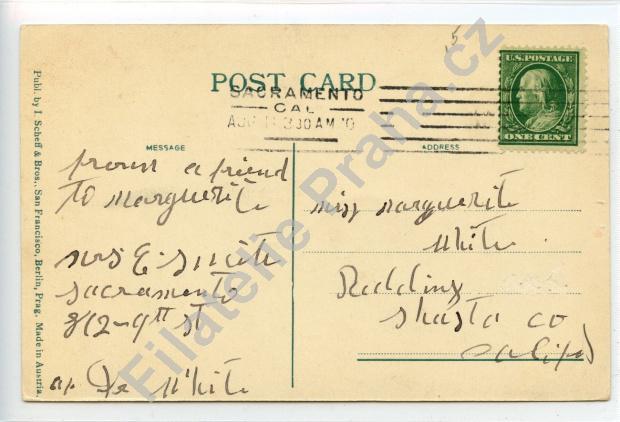 5
U.S. POSTAGE
ONE CENT
POST CARD
SACRAMENTO
CAL
30 AM
MESSAGE
ADDRESS
from a friend
to Marguerite
Mrs E Smith
Sacramento
812-9th st
Dr White
Miss Marguerite
White
Redding
Shasta co
Calif
Publ. by I. Scheff & Bros., San Francisco, Berlin, Prag. Made in Austria.
Filatelie Praha.cz